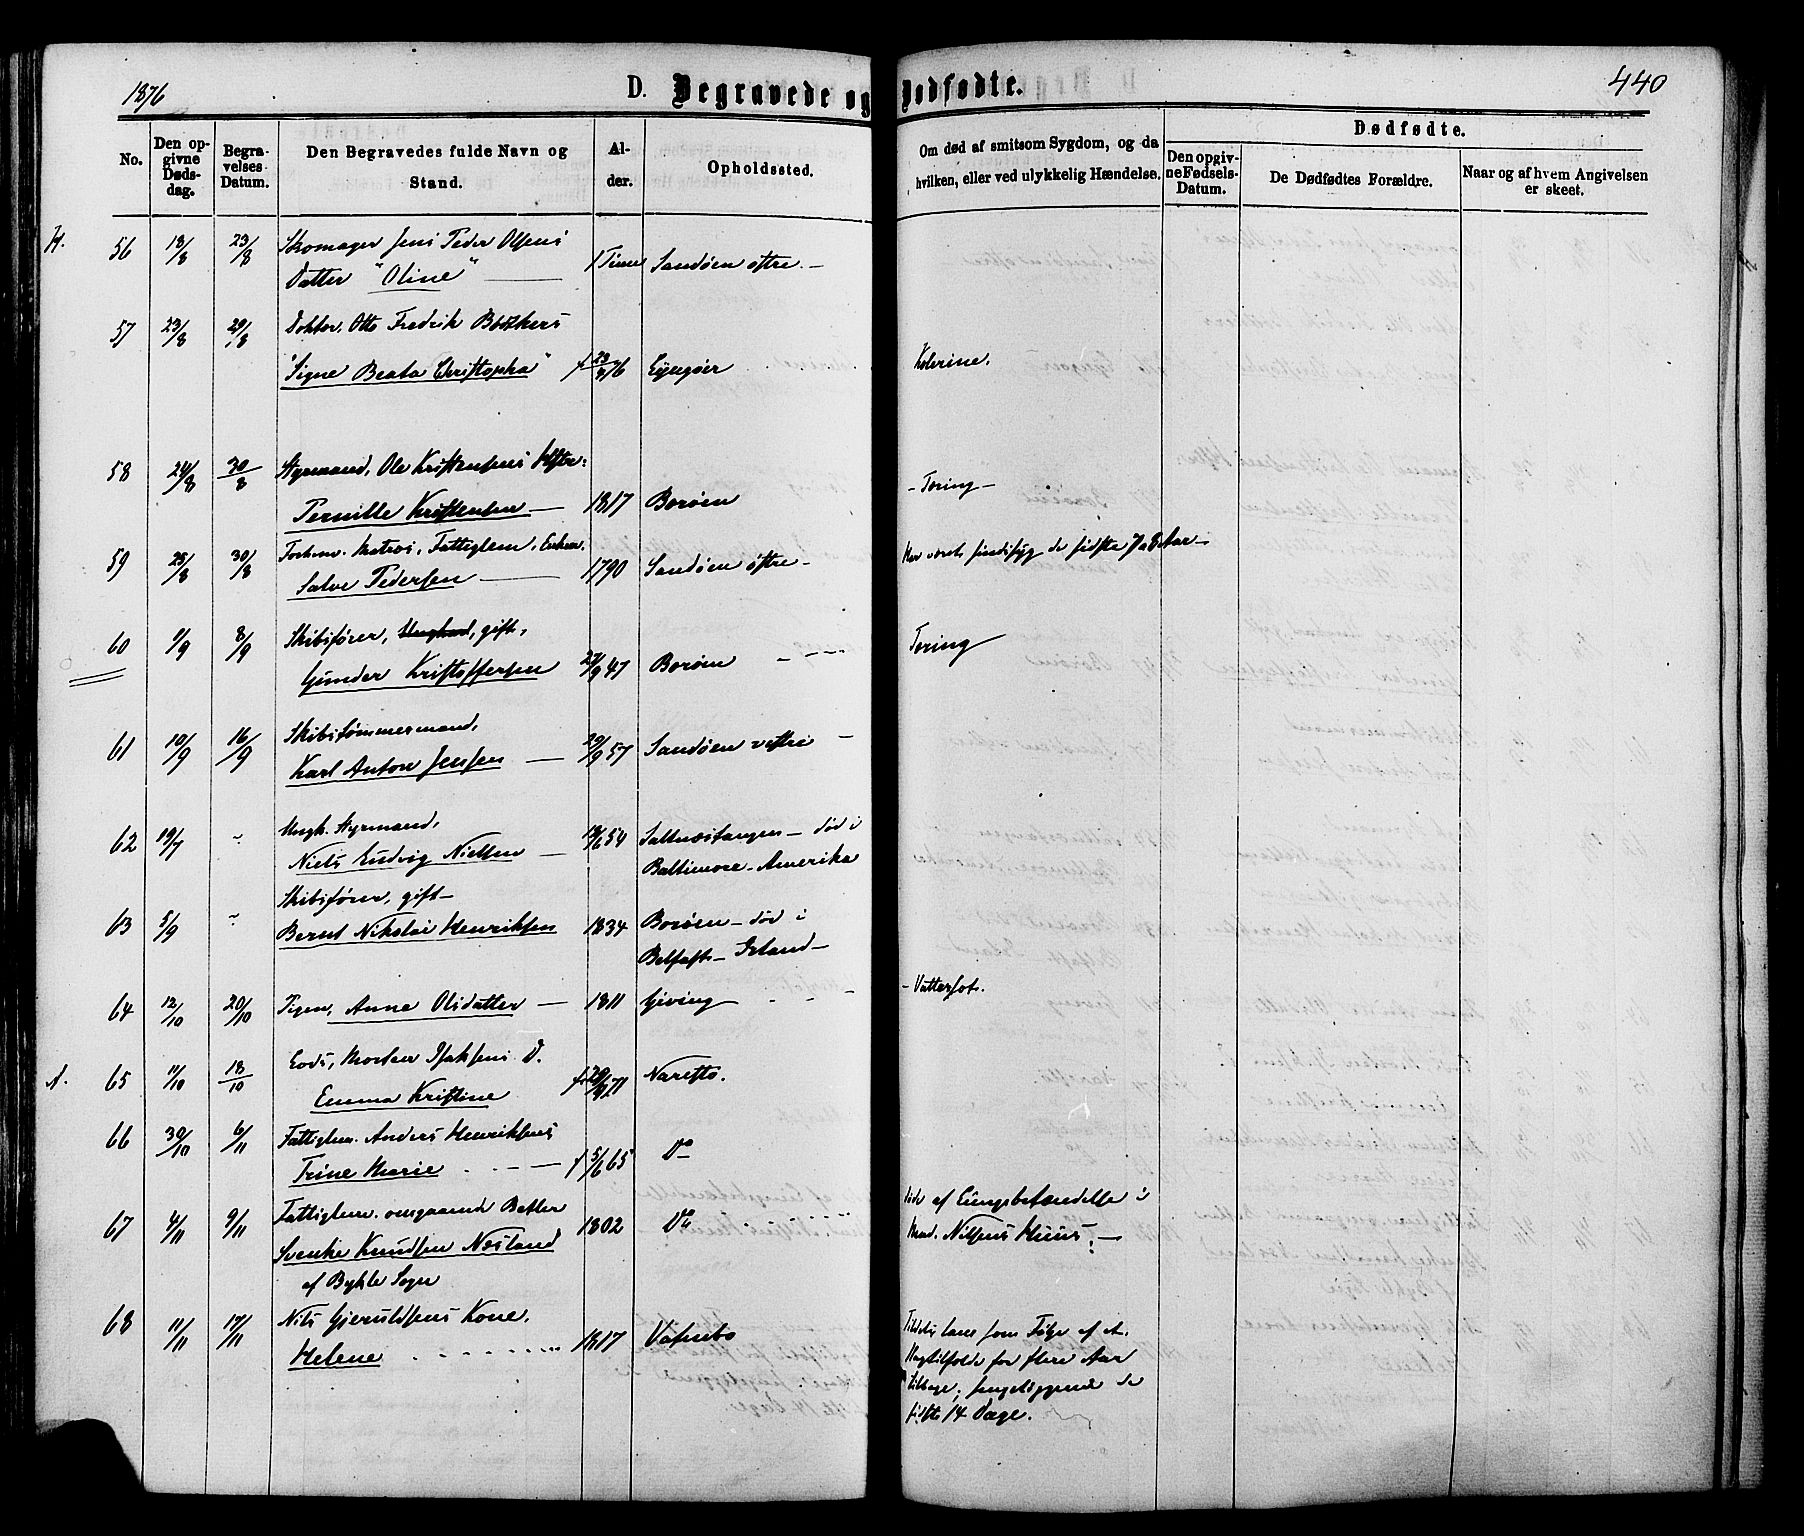 1876 D. Begravede og Dødfødte. 440
No. Den opgivne Dødsdag. Begravelses Datum. Den Begravedes fulde Navn og Stand. Alder. Opholdssted. Om død af smitsom Sygdom, og da hvilken, eller ved ulykkelig Hændelse. Dødfødte. Den opgivne Fødsels-Datum. De Dødfødtes Forældre. Naar og af hvem Angivelsen er skeet.
56 18/8 23/8 Skomager Jens Peder Olsens
Datter "Oline" 1 Time Sandøen østre
57 23/8 29/8 Doktor Otto Fredrik
"Signe Beata Christopha" f 76 Kolerine.
58 24/8 30/8 Styrmand, Ole Kristensens
Pernille Kristensen 1817 Borøen - Tæring -
59 25/8 30/8 Matros, Fattiglem, Enkem.
Salve Pedersen 1790 Sandøen østre Har været sindssyg de sidste 7 a 8 Aar
60 1/9 8/9 Skibsfører, gift,
Gunder Kristoffersen 27/9 47 Borøen Tæring
61 10/9 16/9 Skibstømmermand,
Karl Anton Jensen 20/9 57 Sandøen vestre
62 19/7 " Ungk. Styrmand,
Niels Ludvig Nielsen 18/6 54 Saltnæstangen - død i
Baltimore - Amerika
63 5/9 " Skibsfører, gift
Bernt Nikolai Henriksen 1834 Borøen - død i
Belfast - Irland
64 12/10 20/10 Pigen, Anne Olsdatter 1811 Giving - Vattersot.
65 11/10 18/10 Lods, Morten Isaksens D.
Emma Kristine f 71 Narestø.
66 30/10 6/11 Fattiglem. Anders Henriksens
Trine Marie f 5/6 65 Do
67 4/11 9/11 Fattiglem. omgaaende Betler
Svenke Knudsen Næsland 1802 Do
af Bykle Sogn
Døde af Lungebetændelse i
Mad. Nilsens Huus.
68 11/11 17/11 Nils Gjeruldsens Kone,
Helene 1817 Vatnebo
som Følge af et
for flere Aar
tilbage; sengeliggende de
sidste 14 Dage.